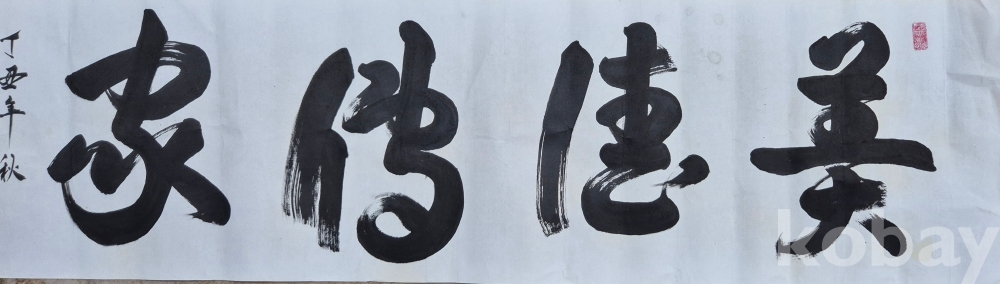 美德傳家
丁丑年秋
kobay